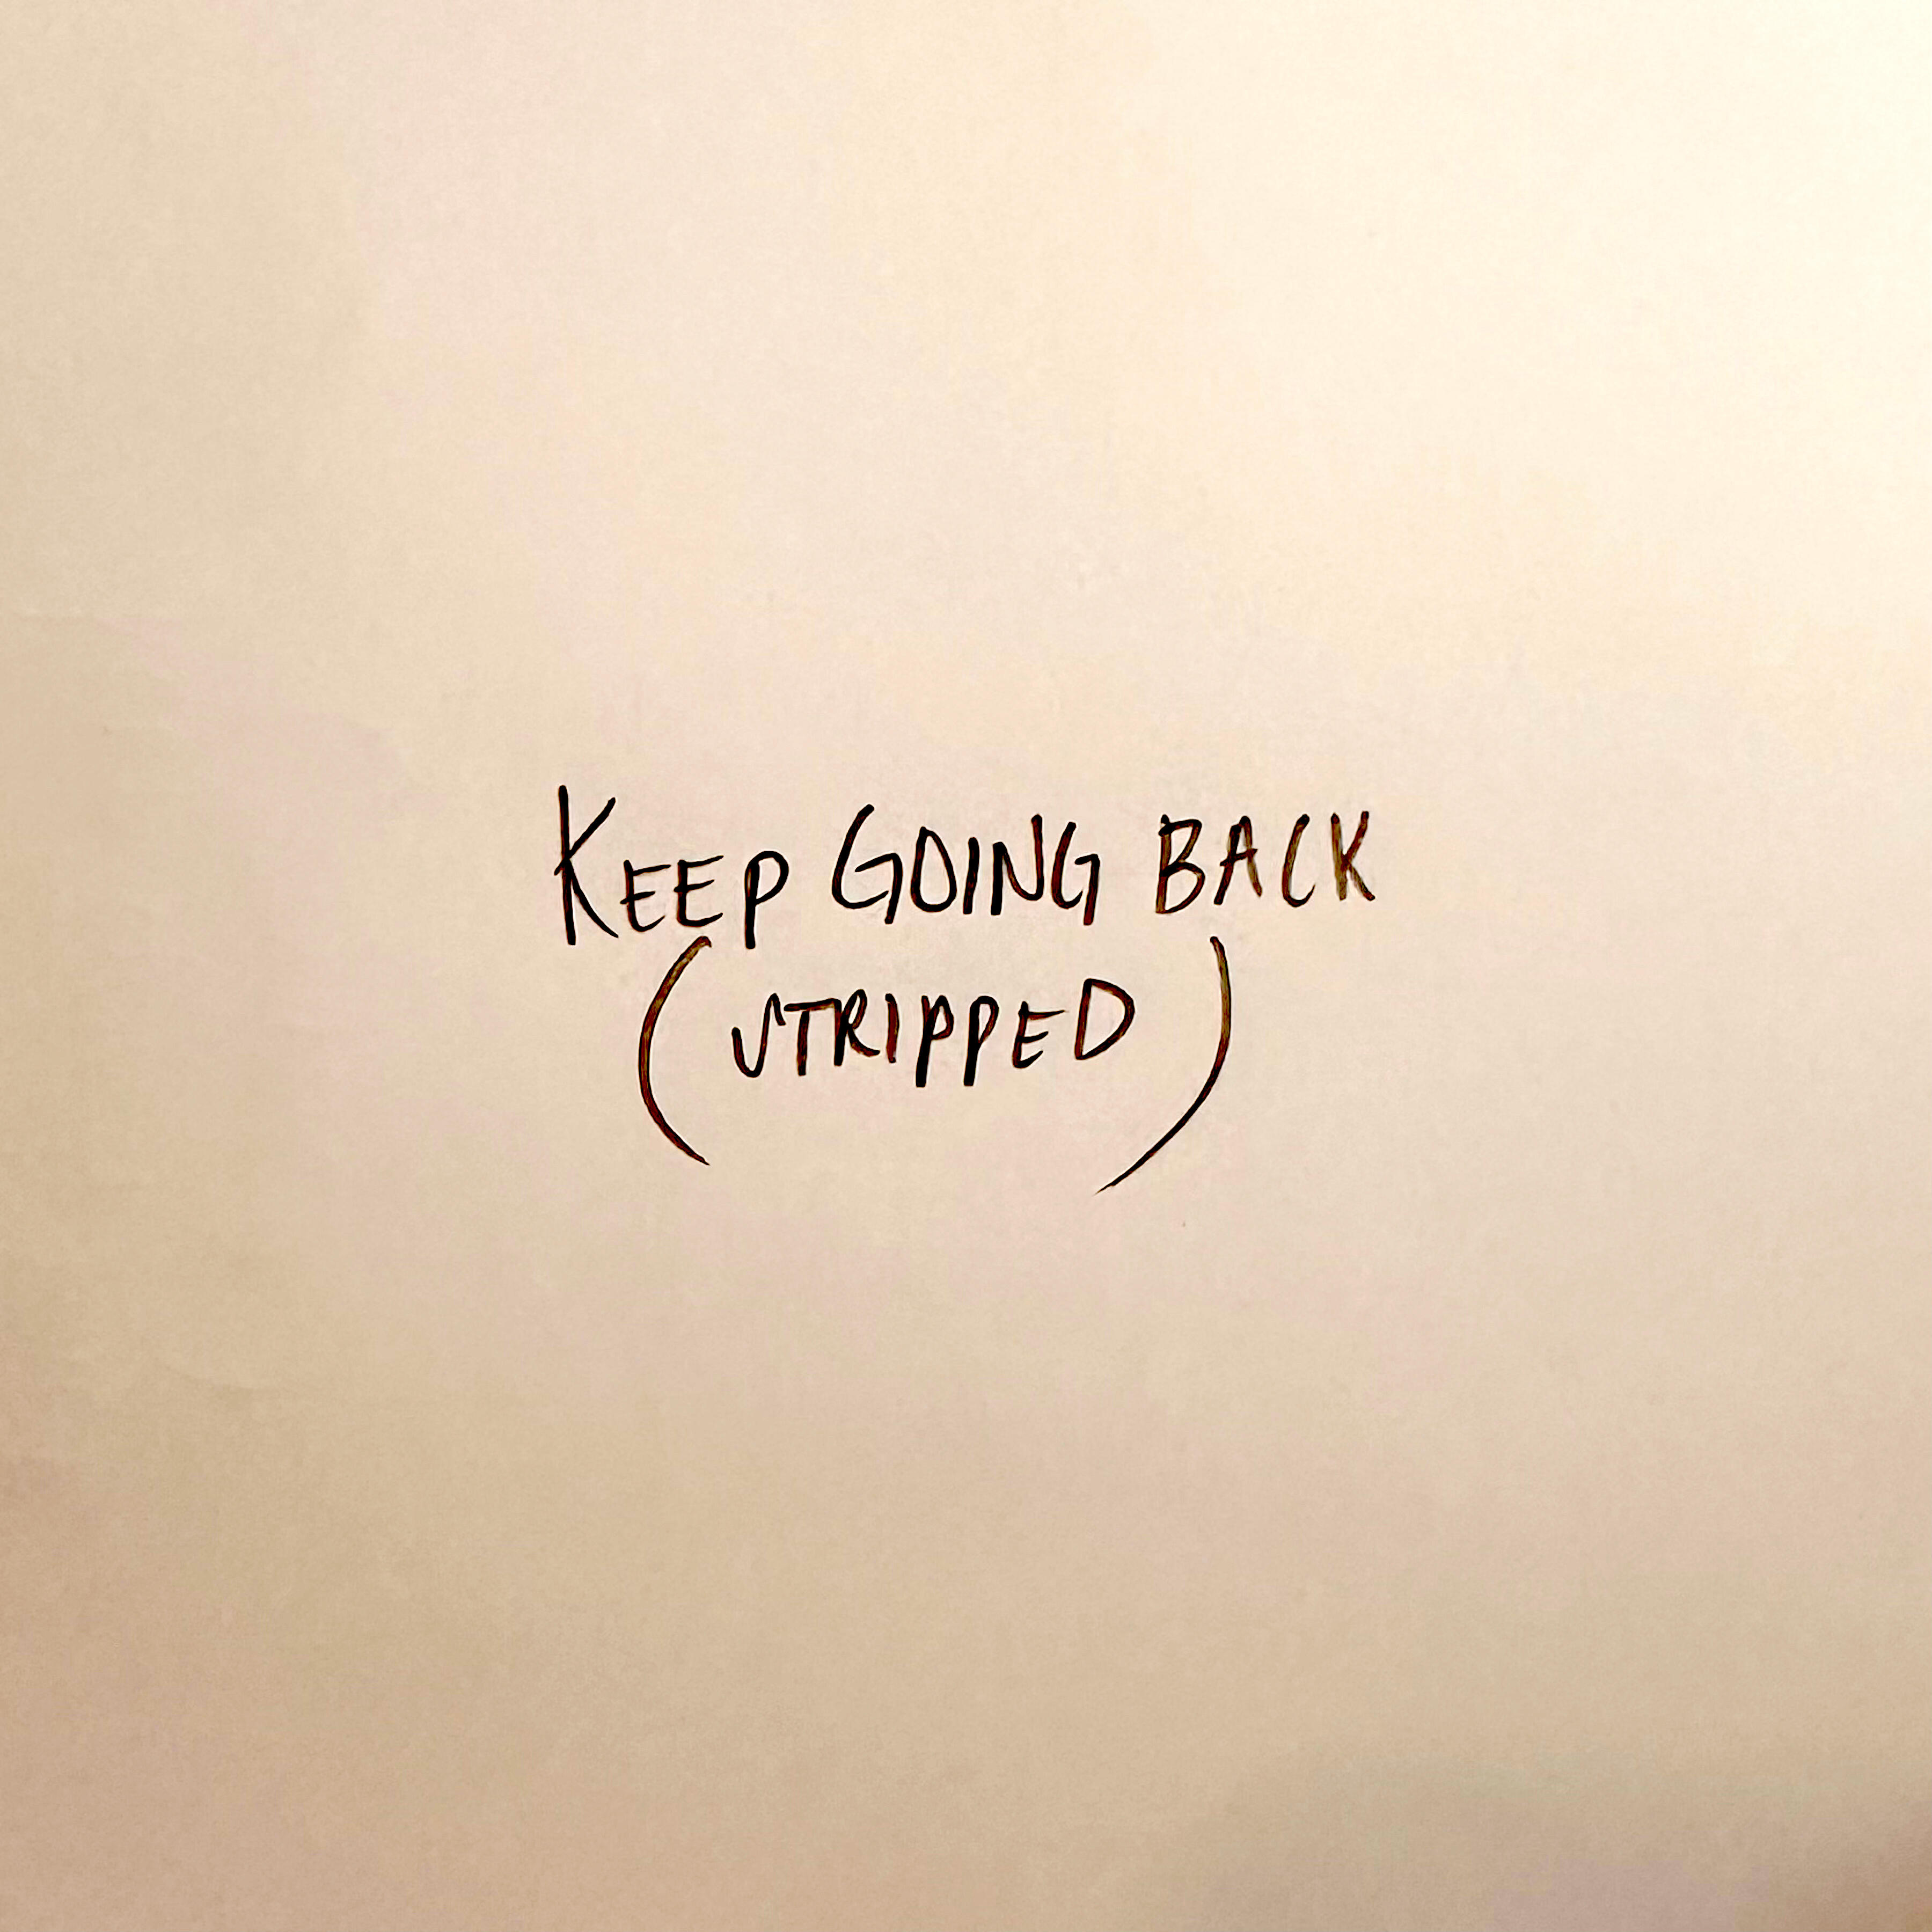 KEEP GOING BACK
(STRIPPED)